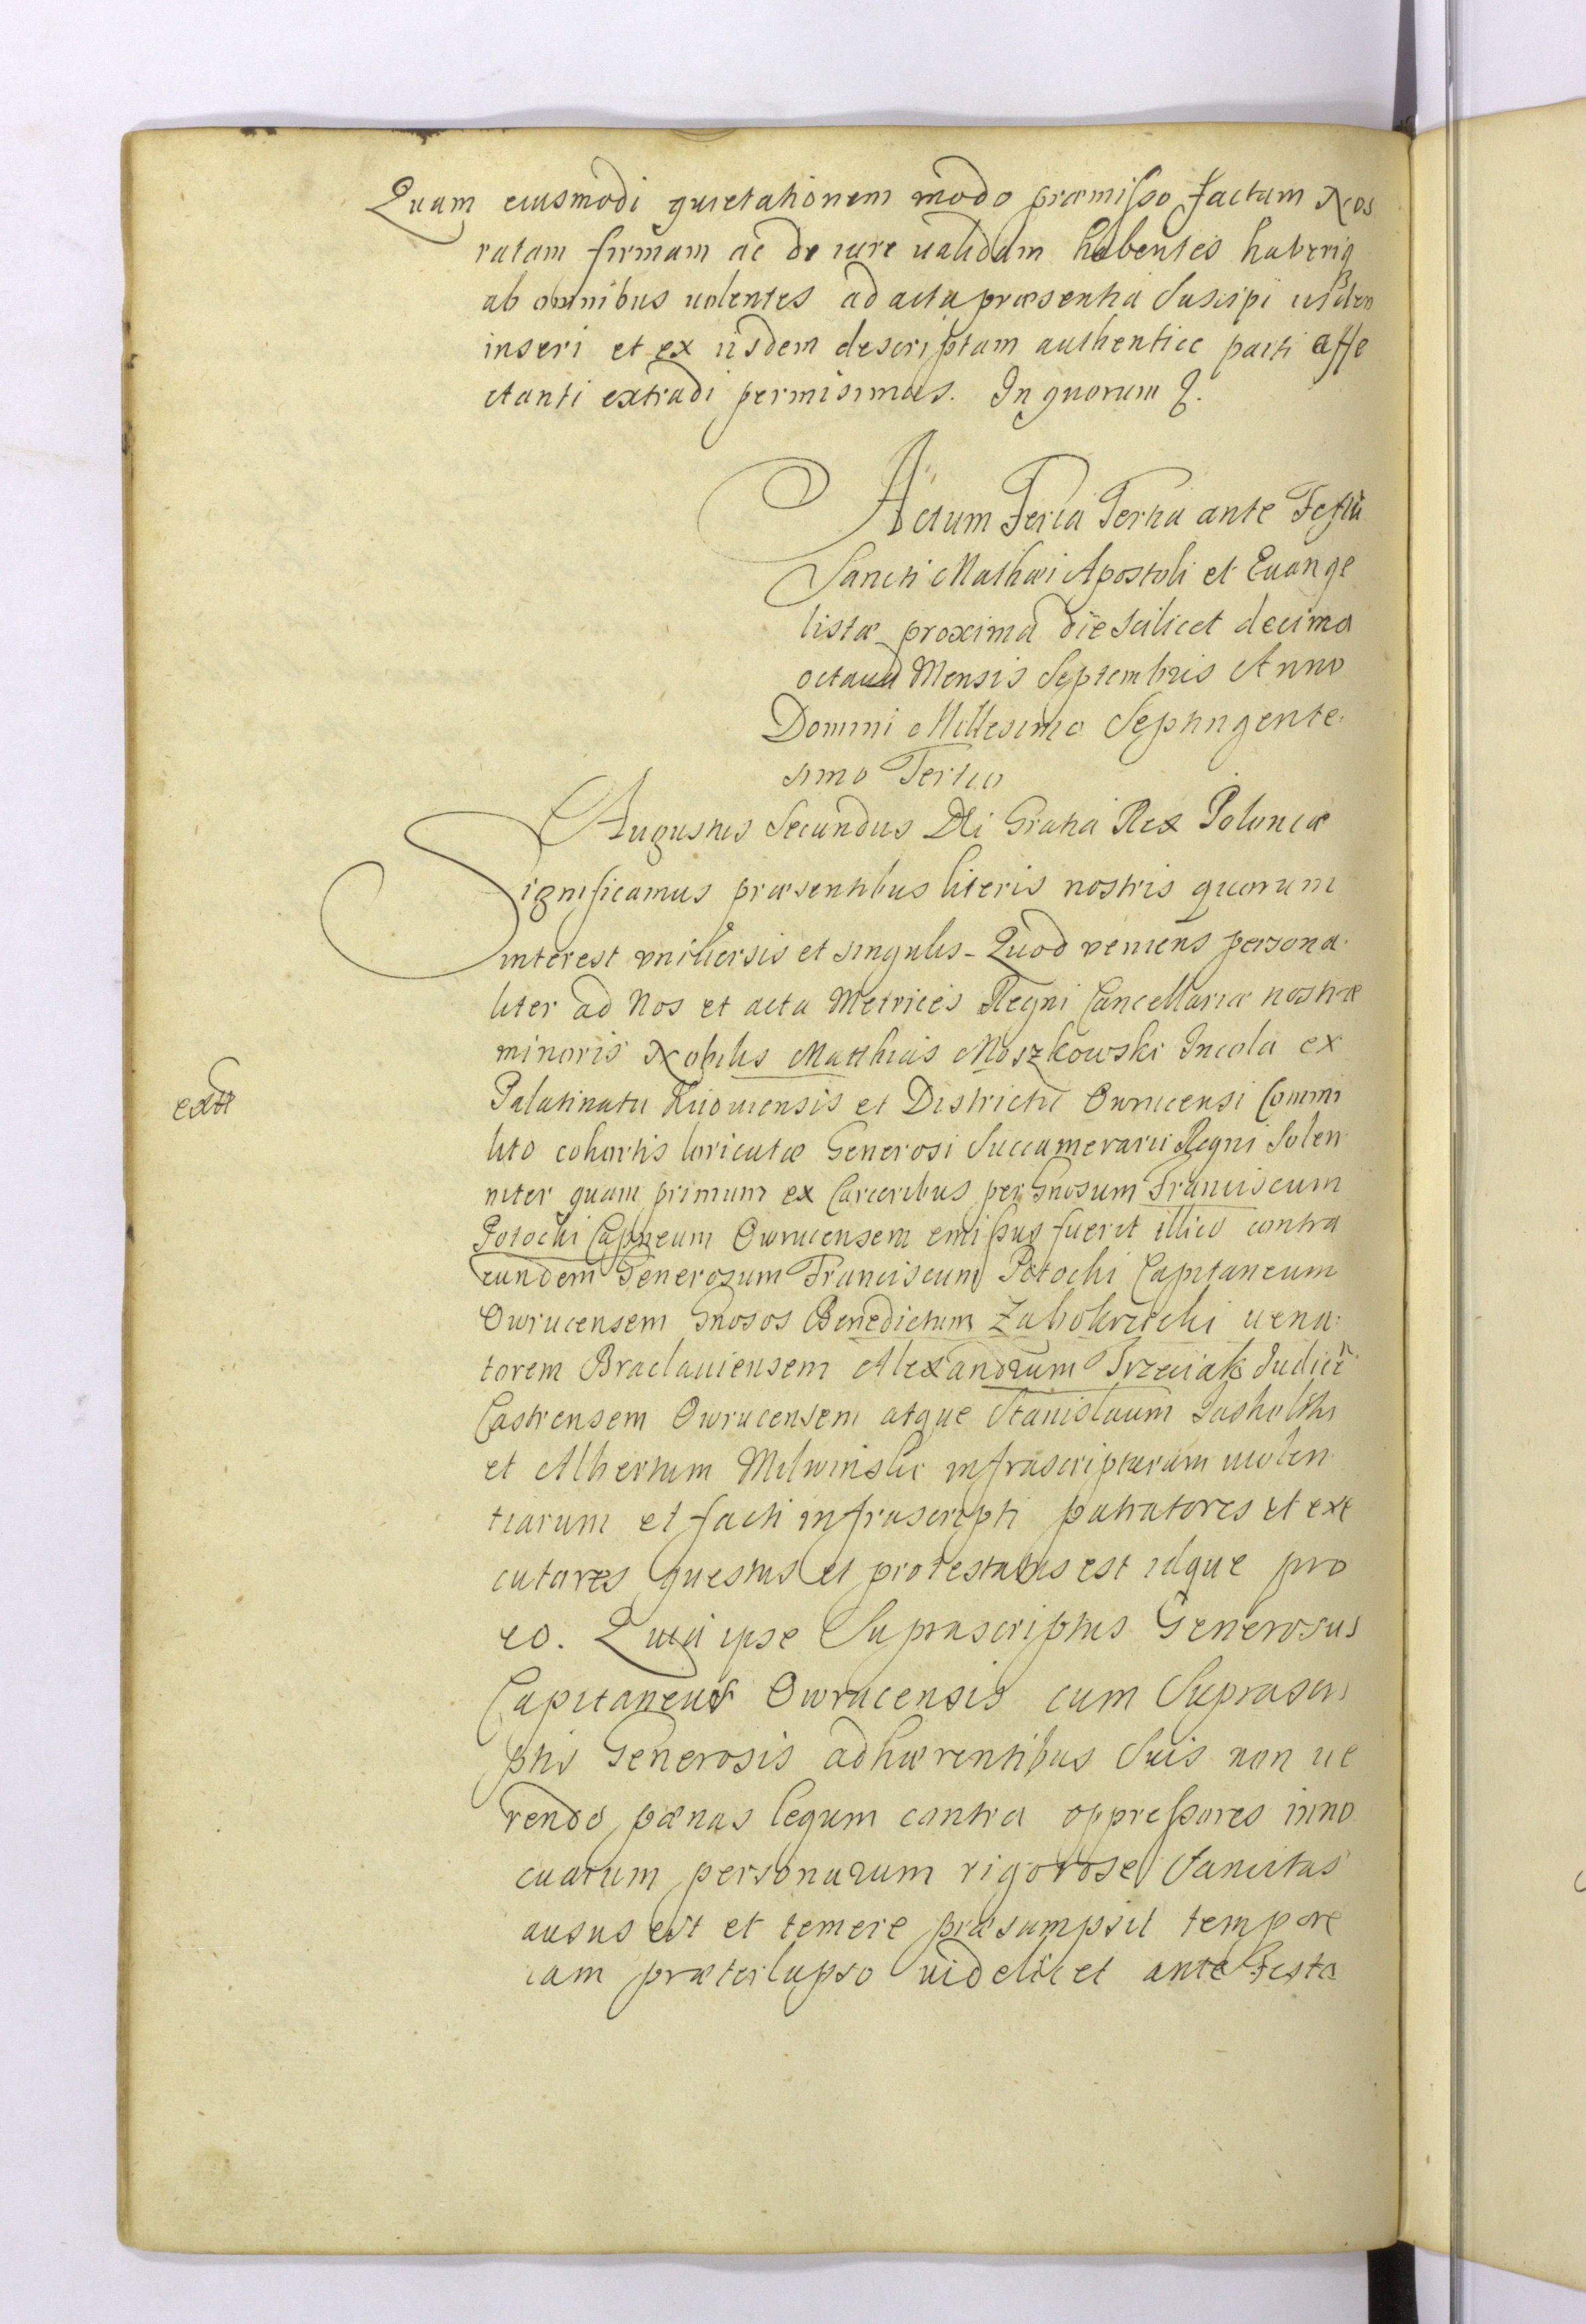 Quam eiusmodi quietationem modo præmisso factam Nos
ratam firmam ac de iure ualidam habentes haberiq
ab omnibus uolentes ad acta præsentia Suscipi iisdem
inseri et ex iisdem descriptam authentice parti affe
ctanti extradi permisimus. In quorum
Actum Feria Tertia ante Festũ
Sancti Mathæi Apostoli et Euange
listæ proxima die scilicet decima
octaua Mensis Septembris Anno
Domini Millesimo Septingente
simo Tertio
Augustus Secundus Dei Gratia Rex Poloniæ
Significamus præsentibus literis nostris quorum
interest vniuersis et singulis - Quod veniens persona
liter ad Nos et acta Metrices Regni Cancellariæ nostræ
minoris Nobilis Matthias Moszkowski Incola ex
extt
Palatinatu Kiouiensis et Districtu Owrucensi Commi
lito cohortis loricatæ Generosi Succamerarii Regni Solen
niter quam primum ex Carceribus per Gnosum Franciscum
Potocki Capneum Owrucensem emissus fuerit illico contra
eundem Generosum Franciscum Potocki Capitaneum
Owrucensem Gnosos Benedictum Zabokrzicki uena
torem Braclauiensem Alexandrum Trzeciak Judicẽ
Castrensem Owrucensem atque Stanislaum
et Albertum Milwinski infrascriptarum uiolen
tiarum et facti infrascripti patratores et exe
cutores questus et protestatus est idque pro
eo. Quia ipse Suprascriptus Generosus
Capitaneus Owrucensis cum Suprascri
ptis Generosis adhærentibus Suis non ue
rendo pænas legum contra oppressores inno
cuarum personarum rigorose Sancitas
ausus est et temere præsumpsit tempore
iam præterlapso uidelicet ante Festa